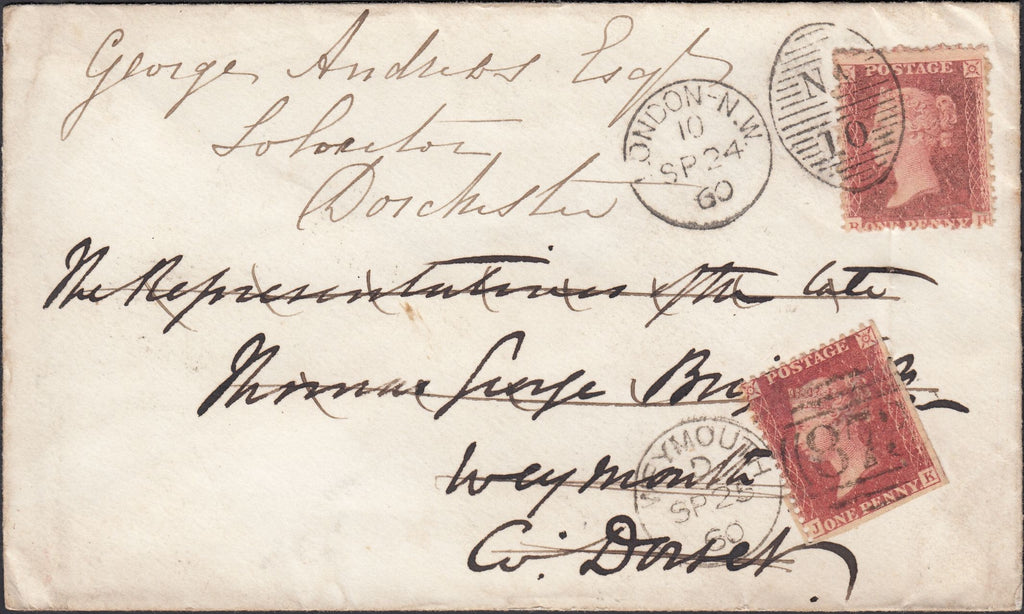 George Andrews Esqr
Solicitor
Dorchester
LONDON-N.W
10
SP 24
60
N.W
10
POSTAGE
ONE PENNY
The Representatives of the late
Thomas George
Weymouth
Co. Dorset
WEYMOUTH
D
SP 25
60
POSTAGE
87
J ONE PENNY E